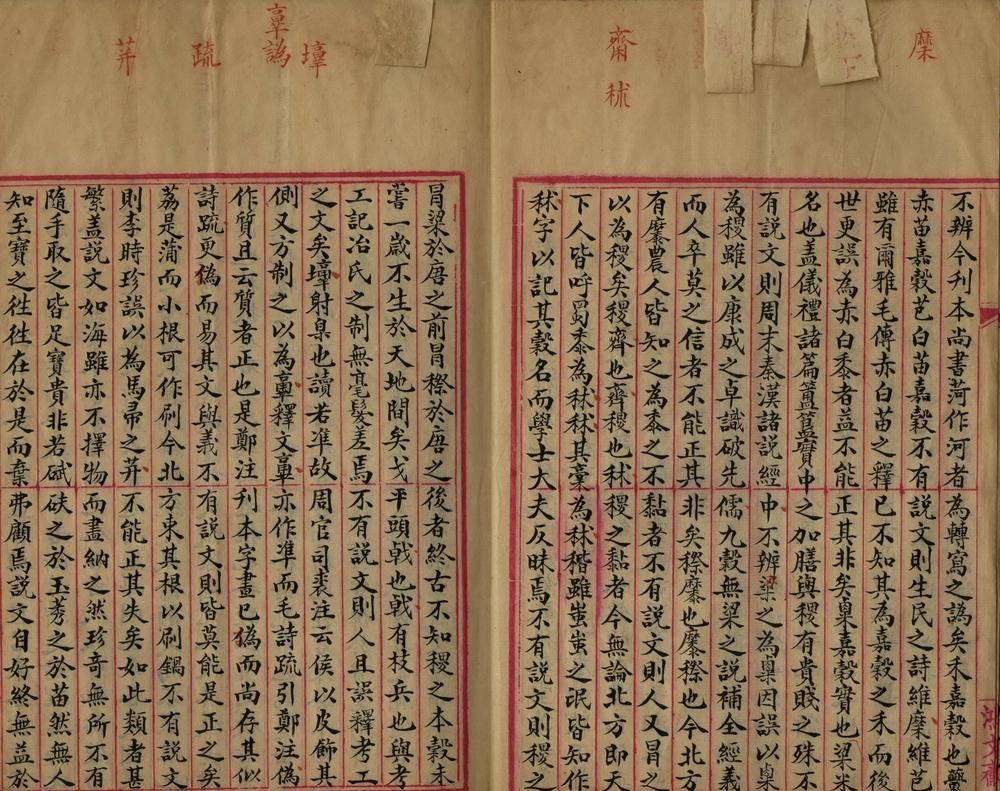 穈
齋
秫
不辨今刊本尚書菏作河者為轉寫之譌矣禾嘉穀也虋
赤苗嘉穀芑白苗嘉穀不有說文則生民之詩維穈維芑
雖有爾雅毛傳赤白苗之釋已不知其為嘉穀之禾而後
世更誤為赤白黍者益不能正其非矣㮚嘉穀實也梁米
名也盖儀禮諸篇簠簋實中之加膳與稷有貴賤之殊不
有說文則周末秦漢諸說經中不辨粱之為㮚因誤以㮚
為稷雖以康成之卓識破先儒九穀無粱之說補全經義
而人卒莫之信者不能正其非矣穄穈也穈穄也今北方
有穈農人皆知之為黍之不黏者不有說文則人又冒之
以為稷矣稷齋也齋稷也秫稷之黏者今無論北方即天
下人皆呼蜀黍為秫秫其稾為秫稭雖蚩蚩之氓皆知作
秫字以記其穀名而學士大夫反昧焉不有說文則稷之
譌
疏
荓
冐梁於唐之前冐穄於唐之後者終古不知稷之本穀未
嘗一歲不生於天地間矣戈平頭戟也戟有枝兵也與考
工記冶氏之制無毫髮差焉不有說文則人且誤釋考工
之文矣射臬也讀若準故周官司裘注云侯以皮飾其
側又方制之以為釋文亦作準而毛詩疏引鄭注偽
作質且云質者正也是鄭注刊本字畫已偽而尚存其似
詩疏更偽而易其文與義不有說文則皆莫能是正之矣
荔是蒲而小根可作刷今北方束其根以刷鍋不有說文
則李時珍誤以為馬帚之荓不能正其失矣如此類者甚
繁盖說文如海雖亦不擇物而畫納之然珍奇無所不有
隨手取之皆足寶貴非若碔砆之於玉莠之於苗然無人
知至寶之徃徃在於是而棄弗顧焉說文自好終無益於